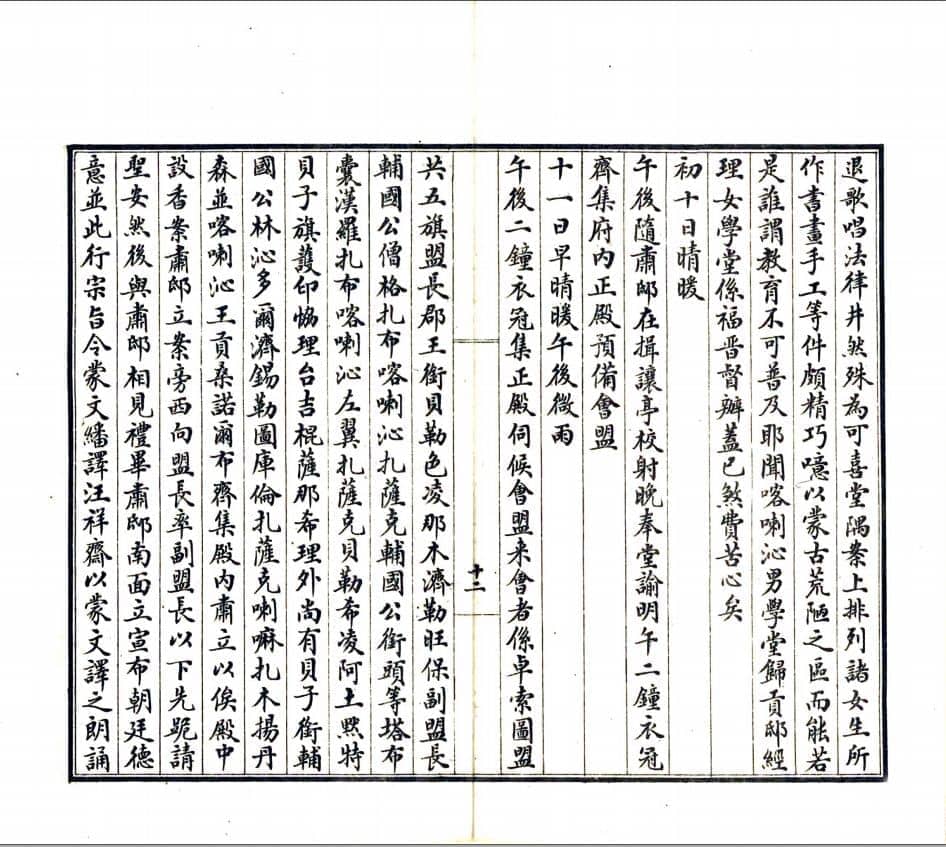 退歌唱法律井然殊為可喜堂隅案上排列諸女生所
作書畫手工等件頗精巧噫以蒙古荒陋之區而能若
是誰謂教育不可普及耶聞喀喇沁男學堂歸貢邸經
理女學堂係福晋督辦蓋已煞費苦心矣
初十日晴暖
午後隨肅邸在揖讓亭校射晚奉堂諭明午二鐘衣冠
齊集府内正殿預備會盟
十一日早晴暖午後微雨
午後二鐘衣冠集正殿伺候會盟来會者係卓索圖盟
十二
共五旗盟長郡王銜貝勒色凌那木濟勒旺保副盟長
輔國公僧格扎布喀喇沁扎薩克輔國公銜頭等塔布
囊漢羅扎布喀喇沁左翼扎薩克貝勒希凌阿土黙特
貝子旗護印協理台吉棍薩那希理外尚有貝子銜輔
國公林沁多爾濟錫勒圖庫倫扎薩克喇嘛扎木揚丹
森並喀喇沁王貢桑諾爾布齊集殿内肅立以俟殿中
設香案肅邸立案旁西向盟長率副盟長以下先跪請
聖安然後與肅邸相見禮畢肅邸南面立宣布朝廷德
意並此行宗旨令蒙文繙譯汪祥齋以蒙文譯之朗誦